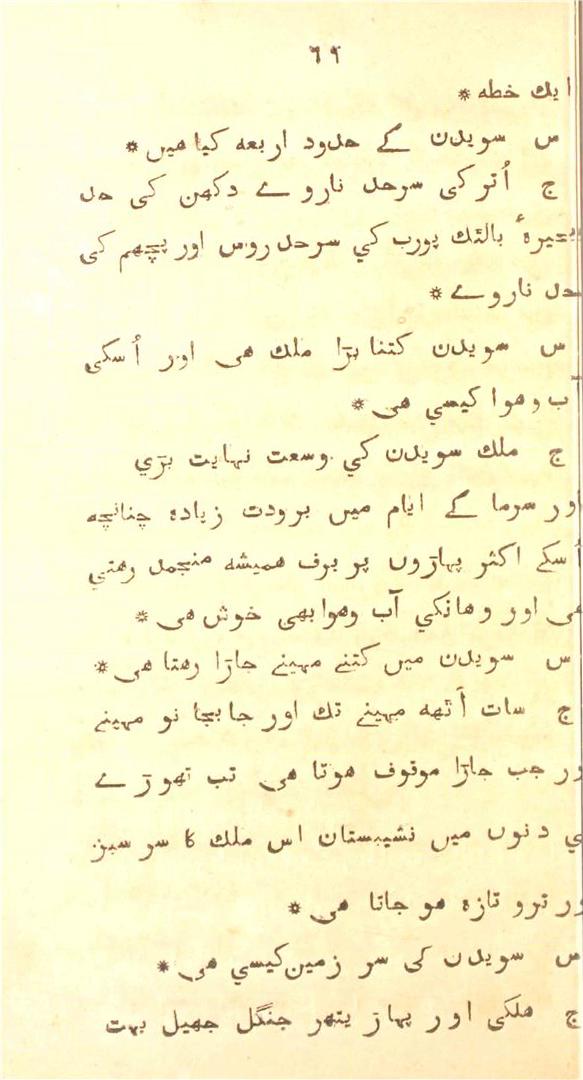 ٦٩
ایك خطه *
س سویدن کے حدود اربعه کیا هیں *
ج اُتر کی سرحد ناروے دکھن کی حد
بحیرۂ بالٹك پورب کي سرحد روس اور پچھم کی
حد ناروے *
س سویدن کتنا بڑا ملك هی اور اُسکی
آب وهوا کیسي هی *
ج ملك سویدن کي وسعت نهایت بڑي
اور سرما کے ایام میں برودت زیاده چنانچه
اُسکے اکثر پهاڑوں پر برف همیشه منجمد رهتي
هی اور وهانکي آب وهوا بهی خوش هی *
س سویدن میں کتنے مهینے جاڑا رهتا هی *
ج سات اَٹهه مهینے تك اور جابجا نو مهینے
اور جب جاڑا موقوف هوتا هی تب تهوڑے
هي دنوں میں نشیبستان اس ملك کا سر سبز
اور ترو تازه هو جاتا هی *
س سویدن کی سر زمین کیسي هی *
ج هلکی اور پهاڑ پتهر جنگل جهیل بهت